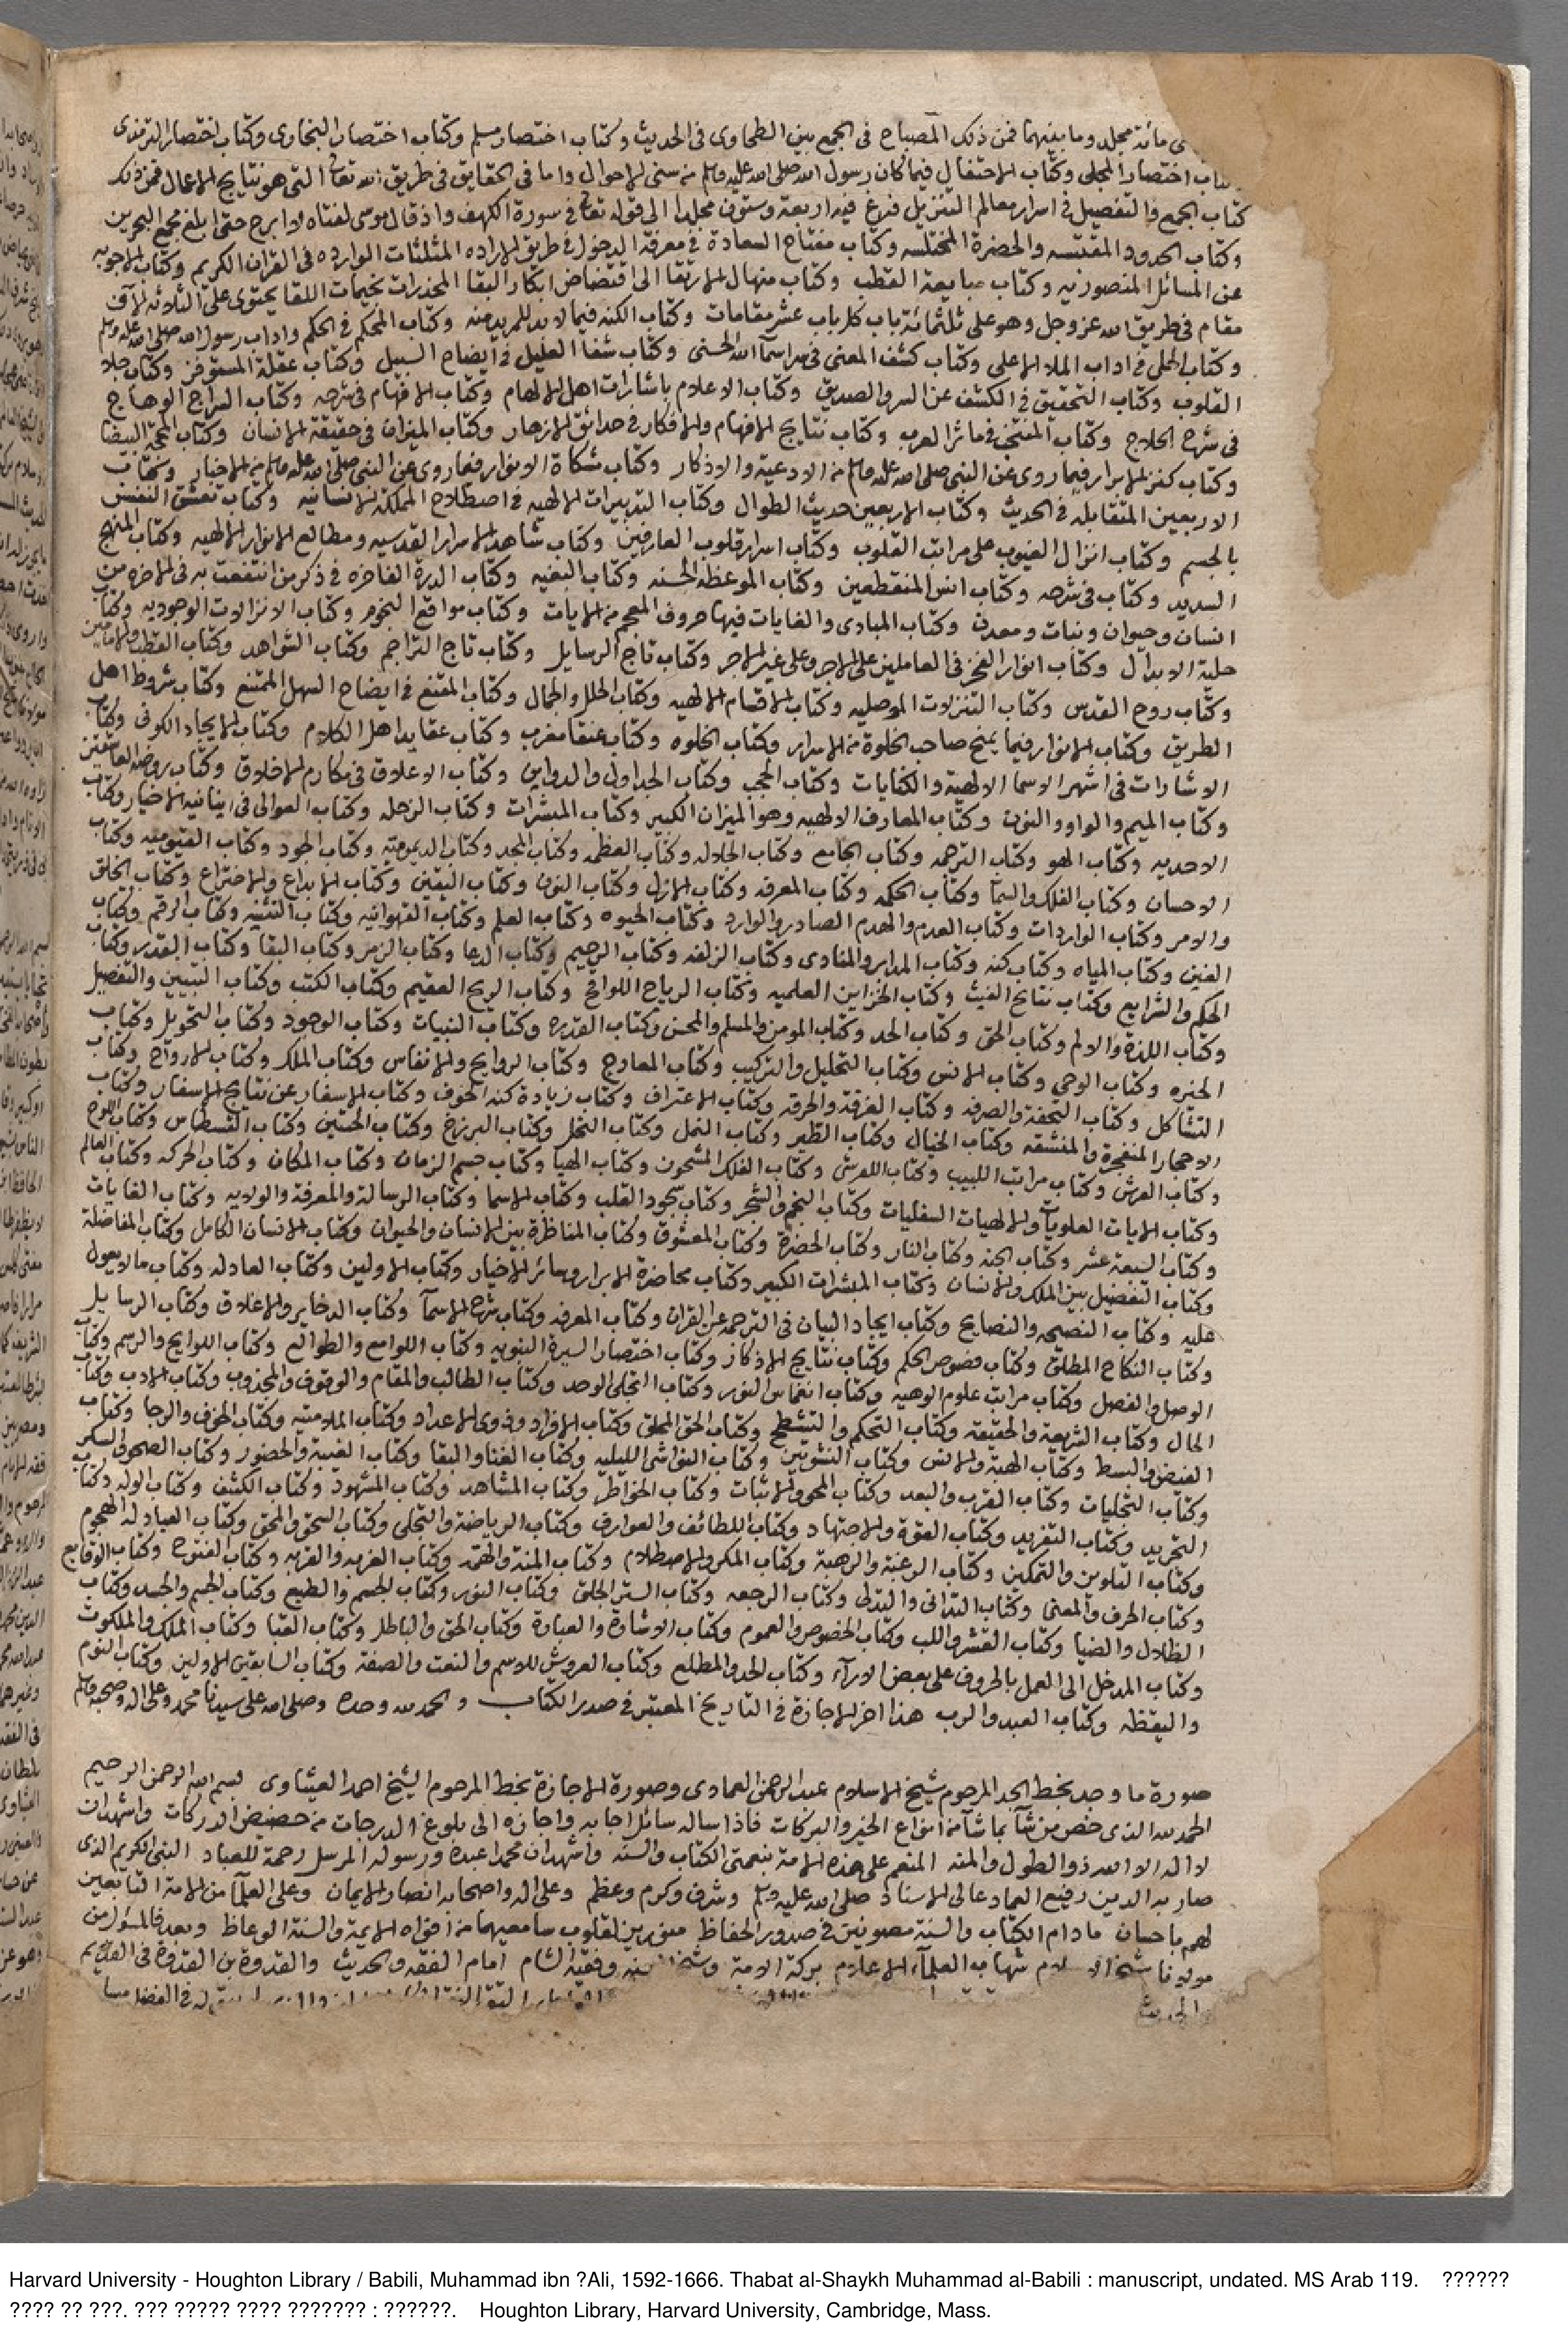 مائة مجلد وما بينهما فمن ذلك المصباح في الجمع بين الطحاوى فى الحديث وكتاب اختصار مسلم وكتاب اختصار البخاوى وكتاب اختصار الترمذى
كتاب اختصار المحلى وكتاب الاحتفال فيما كان رسول الله صلى الله عليه وسلم من سنى الاحوال واما فى الحقايق فى طريق الله تعالى التى هو نتايج الاعمال فمن ذلك
كتاب الجمع والتفصيل فى اسرار معالم التنزيل فرغ فيه اربعة وستون مجلدا الى قوله تعالى فى سورة الكهف واذ قال موسى لفتاه لا ابرح حتى ابلغ مجمع البحرين
وكتاب الحدود المقتبسه والحضرة المختلسه وكتاب مفتاح السعادة فى معرفة الدخول فى طريق الاراده المثلثات الوارده فى القران الكريم وكتاب الاجوبه
عن المسائل المنصوريه وكتاب مبايعة القطب وكتاب منهال الارتقا الى افتضاض ابكار البقا المخدرات بخيمات اللقا يحتوى على الثلاثه الاف
مقام فى طريق الله عز وجل وهو على ثلثمائة باب كل باب عشر مقامات وكتاب الكنه فيما لا بد للمريد منه وكتاب المحكم فى الحكم واداب رسول الله صلى الله عليه وسلم
وكتاب الجلى فى اداب الملا الاعلى وكتاب كشف المعنى فى سر اسمآ الله الحسنى وكتاب شفا العليل فى ايضاح السبيل وكتاب عقلة المستوفز وكتاب جلا
القلوب وكتاب التحقيق فى الكشف عن السر والصديق وكتاب الاعلام باشارات اهل الالهام وكتاب الافهام فى شرحه وكتاب السراج الوهاج
فى شرح الحلاج وكتاب المنتخب فى ماثر العرب وكتاب نتايج الافهام والافكار فى حدائق الازهار وكتاب الميزان فى حقيقة الانسان وكتاب المحجة البيضا
وكتاب كنز الابرار فيما روى عن النبى صلى الله عليه وسلم من الادعية والاذكار وكتاب مشكاة الانوار فيما روى عن النبى صلى الله عليه وسلم من الاخبار وكتاب
الاربعين المتقابله فى الحديث وكتاب الاربعين حديث الطوال وكتاب التدبيرات الالهيه فى اصطلاح المملكة الانسانيه وكتاب تعشق النفس
بالجسم وكتاب انزال الغيوب على مراتب القلوب وكتاب اسرار قلوب العارفين وكتاب مشاهد الاسرار القدسيه ومطالع الانوار الالهيه وكتاب المنهج
السديد وكتاب فى شرحه وكتاب انس المنقطعين وكتاب الموعظة الحسنه وكتاب البغيه وكتاب الدرة الفاخره فى ذكر من انتفعت به فى الاخره من
انسان وحيوان ونبات ومعدن وكتاب المبادى والغايات فيها حروف المعجم من الايات وكتاب مواقع النجوم وكتاب الانزالات الوجوديه وكتاب
حلية الابدال وكتاب انوار الفجر فى العاملين على الاجر وعلى غير الاجر وكتاب تاج الرسايل وكتاب تاج التراجم وكتاب الشواهد وكتاب القطب والامامين
وكتاب روح القدس وكتاب التنزلات الموصليه وكتاب الاقسام الالهيه وكتاب الجلال والجمال وكتاب المقنع فى ايضاح السهل الممتنع وكتاب شروط اهل
الطريق وكتاب الانوار فيما يمنح صاحب الخلوة من الاسرار وكتاب الخلوه وكتاب عنقا مغرب وكتاب عقايد اهل الكلام وكتاب الايجاد الكونى وكتاب
الاشارات فى اشهر الاسما الالهية والكنايات وكتاب الحجب وكتاب الجداول والدواير وكتاب الاعلاق فى مكارم الاخلاق وكتاب روضة العاشقين
وكتاب الميم والواو والنون وكتاب المعارف الالهيه وهو الميزان الكبير وكتاب المبشرات وكتاب الرحله وكتاب العوالى فى اسانيد الاخبار وكتاب
الاحديه وكتاب الهو وكتاب الترجمه وكتاب الجامع وكتاب الجلاله وكتاب العظمه وكتاب المجد وكتاب الديموميه وكتاب الجود وكتاب القيوميه وكتاب
الاحسان وكتاب الفلك والسما وكتاب الحكمه وكتاب المعرفه وكتاب الازل وكتاب النون وكتاب اليقين وكتاب الابداع والاختراع وكتاب الخلق
والامر وكتاب الواردات وكتاب العدم والهدم الصادر والوارد وكتاب الحيوه وكتاب العلم وكتاب القهوانيه وكتاب التنبيه وكتاب الرقم وكتاب
العين وكتاب المياه وكتاب كنه وكتاب المدار والمنادى وكتاب الزلفه وكتاب الرحيم وكتاب الدعا وكتاب الزمر وكتاب البقا وكتاب القدر وكتاب
الحكم والشرايع وكتاب نتايج الغيث وكتاب الخزاين العلميه وكتاب الرياح اللواقح وكتاب الريح العقيم وكتاب الكتب وكتاب التبيين والتفصيل
وكتاب اللذة والالم وكتاب الحق وكتاب الحمد وكتاب المومن والمسلم والمحسن وكتاب القدره وكتاب النبيات وكتاب الوجود وكتاب التحويل وكتاب
الحيره وكتاب الوحي وكتاب الانس وكتاب التحليل والتركيب وكتاب المعارج وكتاب الروايح والانفاس وكتاب الملك وكتاب الارواح وكتاب
التشاكل وكتاب التحفة والصرفه وكتاب الفرقة والحرقه وكتاب الاعتراف وكتاب زيادة كنه الخوف وكتاب الاسفار عن نتايج الاسفار وكتاب
الاحجار المنفجرة والمنشقه وكتاب الخيال وكتاب الطير وكتاب النمل وكتاب النحل وكتاب البرزخ وكتاب الحسن وكتاب القسطاس وكتاب اللوح
وكتاب العرش وكتاب مراتب اللبيب وكتاب العرش وكتاب الفلك المشحون وكتاب الهبا وكتاب جسم الزمان وكتاب المكان وكتاب الحركه وكتاب العالم
وكتاب الايات العلويات والالهيات السفليات وكتاب النجم والشجر وكتاب سجود القلب وكتاب الاسما وكتاب الرسالة والمعرفة والولايه وكتاب الغايات
وكتاب السبعة عشر وكتاب الجنه وكتاب النار وكتاب الحضرة وكتاب المعشوق وكتاب المناظرة بين الانسان والحيوان وكتاب الانسان الكامل وكتاب المفاضلة
وكتاب التفضيل بين الملك والانسان وكتاب المبشرات الكبير وكتاب محاضرة الابرار ومسائر الاخيار وكتاب الاولين وكتاب العبادله وكتاب ما لا يعول
عليه وكتاب النصيحه والنصايح وكتاب ايجاد البيان فى الترجمه عن القران وكتاب المعرفه وكتاب شرح الاسمآ وكتاب الدخاير والاعلاق وكتاب الرسايل
وكتاب النكاح المطلق وكتاب فصوص الحكم وكتاب نتايج الاذكار وكتاب اختصار السيرة النبويه وكتاب اللوامع والطوالع وكتاب اللوايح والرسم وكتاب
الوصل والفصل وكتاب مراتب علوم الوهبه وكتاب انفاس النور وكتاب التجلى الوحد وكتاب الطالب والمقام والوقوف والمجذوب وكتاب الادب وكتاب
الحال وكتاب الشريعة والحقيقه وكتاب التحكم والتشطح وكتاب الحق المخلق وكتاب الافراد وذوى الاعداد وكتاب الملامتيه وكتاب الخوف والرجا وكتاب
القبض والبسط وكتاب الهيبة والانس وكتاب النشوتين وكتاب النواشى الليليه وكتاب الفنا والبقا وكتاب الغيبة والحضور وكتاب الصحو والسكر
وكتاب التجليات وكتاب القرب والبعد وكتاب المحو والاثبات وكتاب الخواطر وكتاب المشاهد وكتاب الشهود وكتاب الكشف وكتاب الوله وكتاب
التجريد وكتاب التفريد وكتاب القوة والاجتهاد وكتاب اللطائف والعوارف وكتاب الرياضة والتجلى وكتاب السحق والمحق وكتاب العبادله الهجوم
وكتاب التلوين والتمكين وكتاب الرغبة والرهبة وكتاب المكر والاصطلام وكتاب المنة والهمه وكتاب الغربه والغربه وكتاب الفتوح وكتاب الوقايع
وكتاب الحرف والمعنى وكتاب التدانى والتدلى وكتاب الرجعه وكتاب الستر الجلى وكتاب النور وكتاب الجسم والطبع وكتاب الجسم والجسد وكتاب
الظلال والضيا وكتاب القشر واللب وكتاب الخصوص والعموم وكتاب الاشارة والعبارة وكتاب الحق والباطل وكتاب القبا وكتاب الملك والملكوت
وكتاب المدخل الى العمل بالحروف على بعض الارآء وكتاب الحد والمطلع وكتاب العروش للاسم والنعت والصفة وكتاب السابقين الاولين وكتاب النوم
واليقظه وكتاب العبد والرب هذا اخر الاجازة فى التاريخ المعتبر فى صدر الكتاب والحمد لله وحده وصلى الله على سيدنا محمد وعلى اله وصحبه وسلم
صورة ما وجد بخط الجد المرحوم شيخ الاسلام عبد الرحمن العمادى وصورة الاجازة بخط المرحوم الشيخ احمد العيثاوى بسم الله الرحمن الرحيم
الحمد لله الذى خص من شآ بما شآ من انواع الخير والبركات فاذا ساله سائل اجابه واجازه الى بلوغ الدرجات من حضيض الدركات واشهد ان
لا اله الا الله ذو الطول والمنه المنعم على هذه الامة بنعمتى الكتاب والسنه واشهد ان محمدا عبده ورسوله المرسل رحمة للعباد النبى الكريم الذى
صار به الدين رفيع العماد عالى الاسناد صلى الله عليه وسلم وشرف وكرم وعظم وعلى اله واصحابه انصار الايمان وعلى العلمآ من الامة التابعين
لهم باحسان ما دام الكتاب والسنة مصونين فى صدور الحفاظ مقررين لقلوب سامعيهما من افواه الايمة والسنة الوعاظ وبعد فالمسؤل من
مولانا شيخ شهاب العلمآء الاعلام بركة الامة وفقيه الشام امام الفقه والحديث والقدوة بن القدوة فى القديم
والحديث فى الفضل
Harvard University - Houghton Library / Babili, Muhammad ibn ?Ali, 1592-1666. Thabat al-Shaykh Muhammad al-Babili : manuscript, undated. MS Arab 119. ??????
???? ?? ???. ??? ????? ???? ??????? : ??????. Houghton Library, Harvard University, Cambridge, Mass.